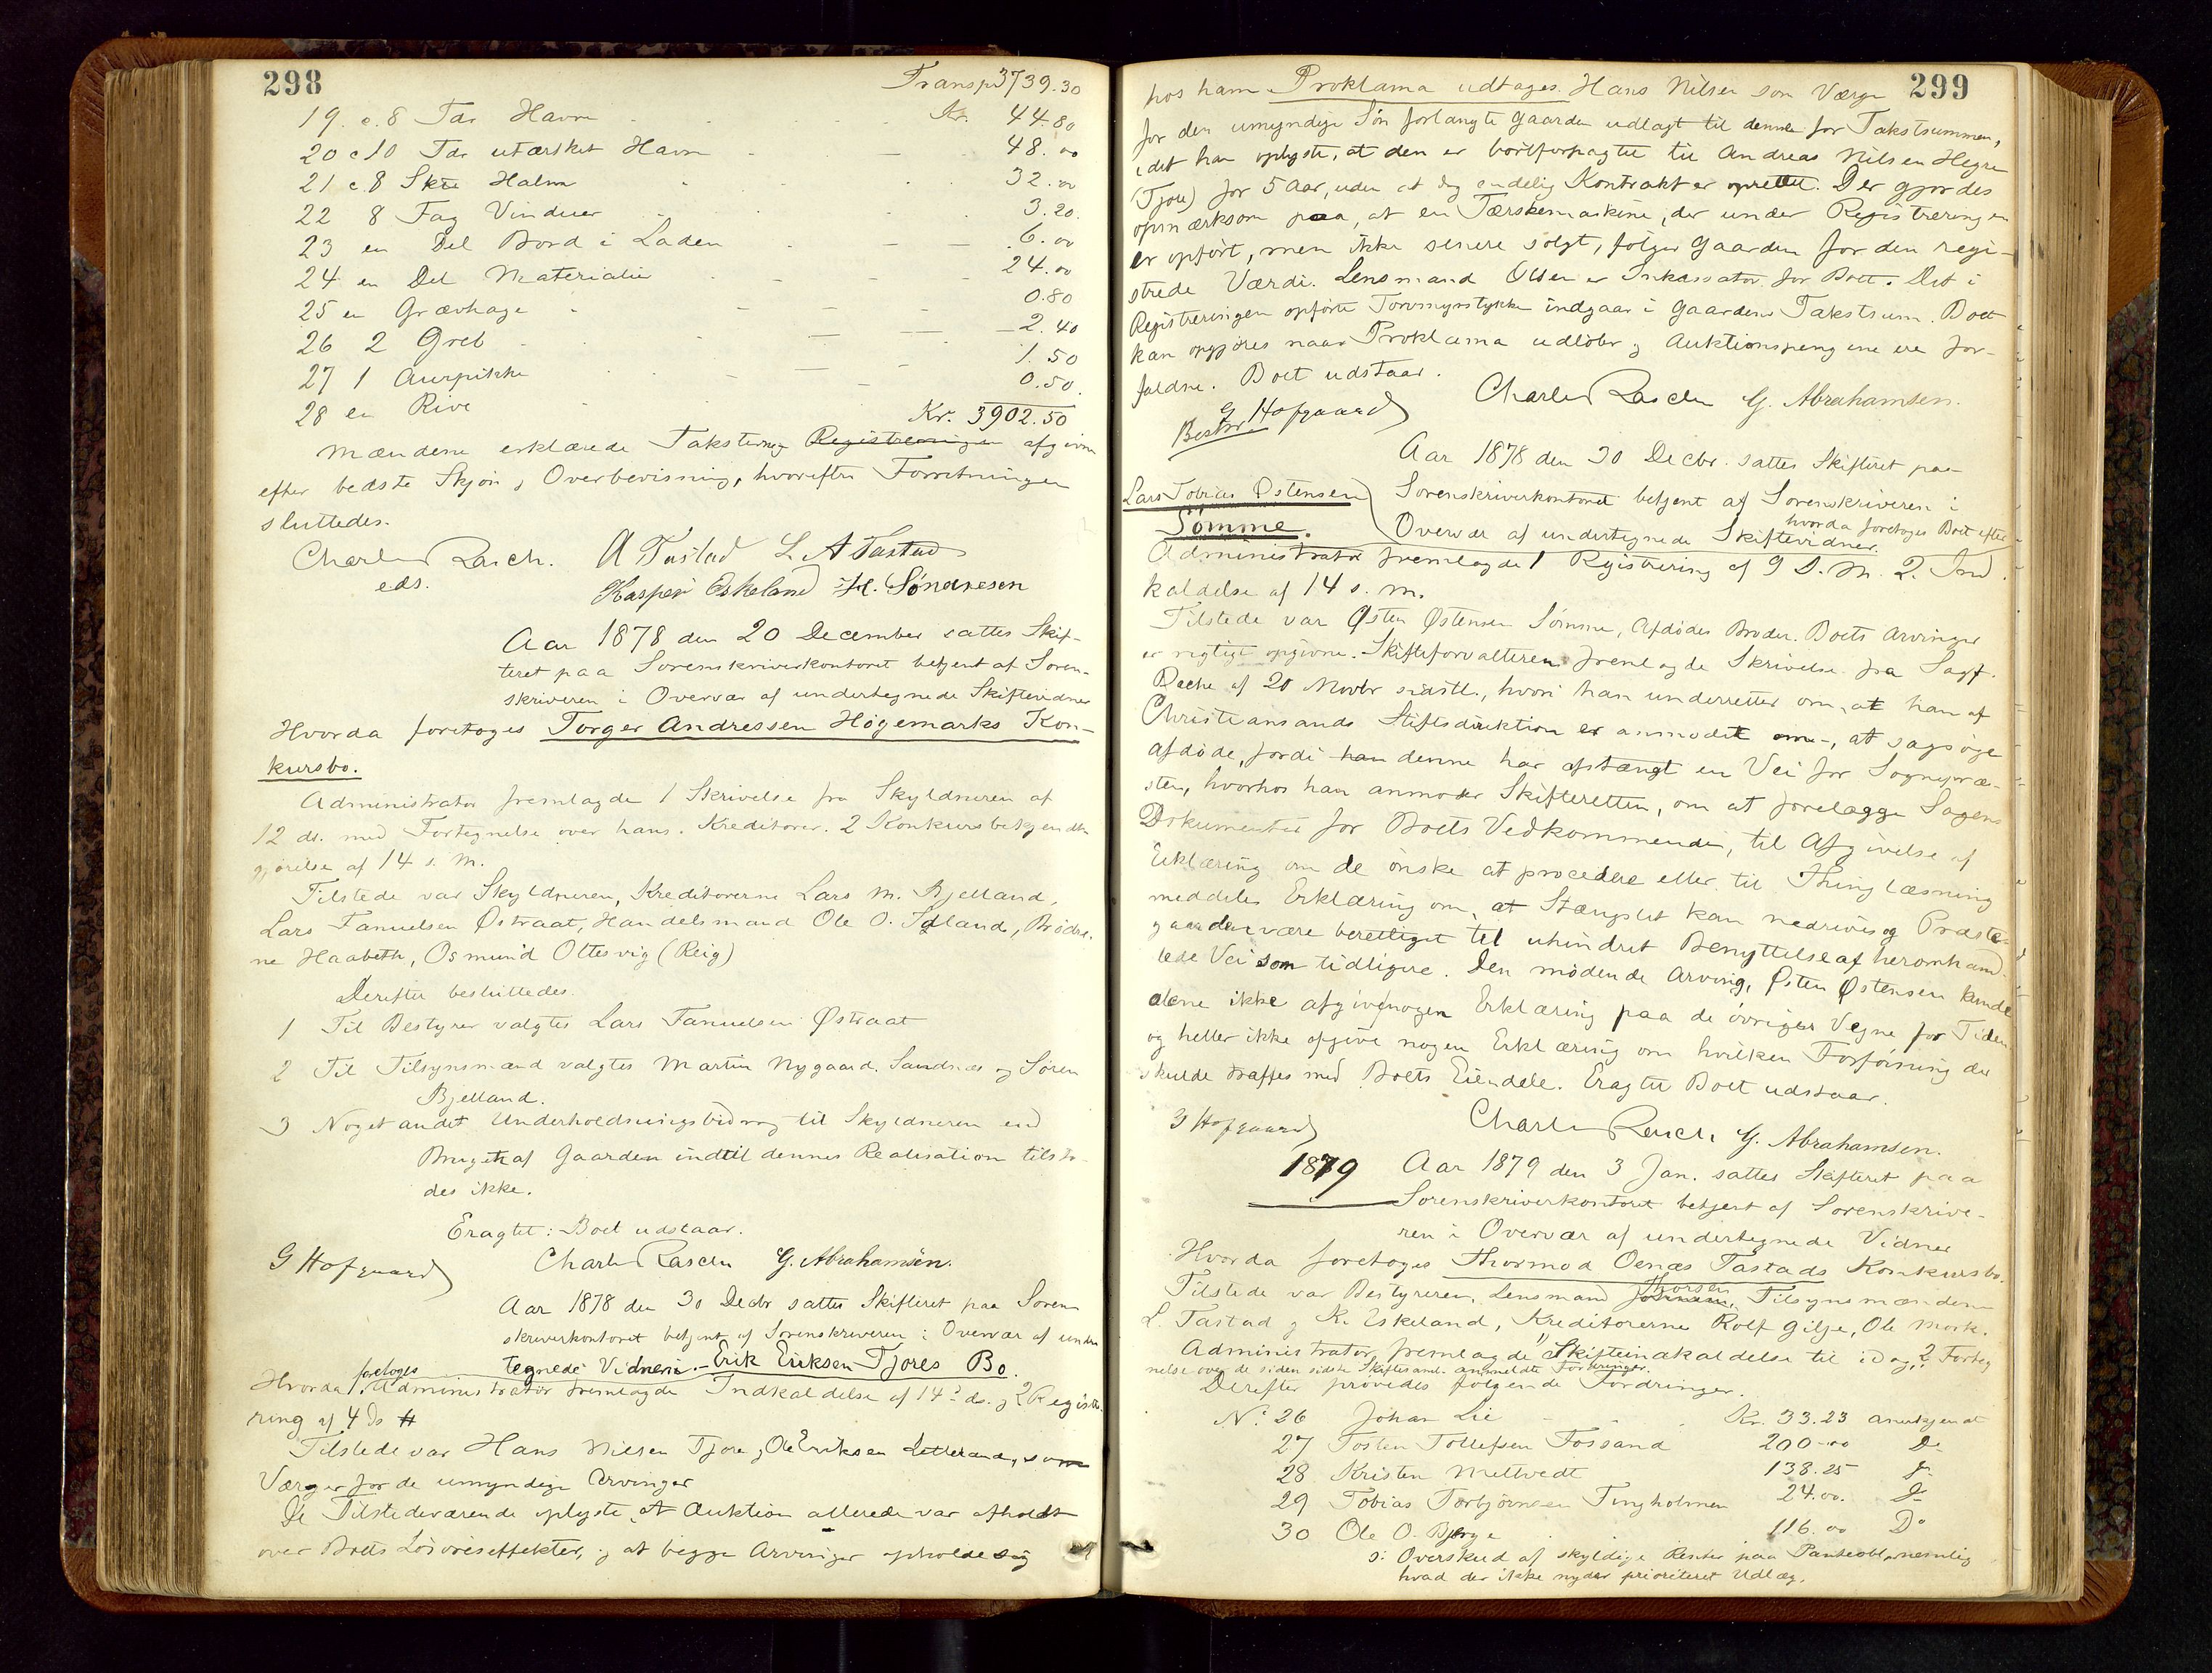 298
Transp. 3739.30
19. c. 8 Tdr Havre Kr. 44.80
20 c 10 Tdr utærsket Havre 48.00
21 c. 8 Skte Halm 32.00
22 8 Fag Vinduer 3.20.
23 en Del Bord i Laden 6.00
24 en Del Materialier 24.00
25 en Grævhage 0.80
26 2 Greb 2.40
27 1 Aurpikke 1.50
28 en Rive 0.50.
Kr. 3902.50
Mændene erklærede Taksterne Registreringen afgivne
efter bedste Skjøn & Overbevisning, hvorefter Forretningen
sluttedes.
Charles Rasch. A Tastad L. A Tastad
eds. Kasper Eskeland H. Søndresen
Aar 1878 den 20 December sattes Skif-
teret paa Sorenskriverkontoret betjent af Soren-
skriveren i Overvær af undertegnede Skiftevidner
Hvorda foretoges Torger Andressen Högemarks Kon-
kursbo.
Administrator fremlagde 1 Skrivelse fra Skyldneren af
12 ds. med Fortegnelse over hans Kreditorer. 2 Konkursbekjendt-
gjörelse af 14 s. M.
Tilstede var Skyldneren, Kreditorerne Lars M. Bjelland,
Lars Fanuelsen Østraat, Handelsmand Ole O. Idland, Brödre-
ne Haabeth, Osmund Oltesvig (Reig)
Derefter besluttedes.
1 Til Bestyrer valgtes Lars Fanuelsen Østraat
2 Til Tilsynsmænd valgtes Martin Nygaard, Sandnæs og Sören
Bjelland.
3 Noget andet Underholdningsbidrag til Skyldneren end
Brugen af Gaarden indtil dennes Realisation tilsto-
des ikke.
Eragtet: Boet udstaar.
G Hofgaard Charles Rasch G. Abrahamsen.
Aar 1878 den 30 Decbr sattes Skifteret paa Soren-
skriverkontoret betjent af Sorenskriveren i Overvær af under
tegnede Vidner. Erik Eriksen Tjores Bo.
foretoges
Hvorda 1. Administrator fremlagde Indkaldelse af 14 ds. & 2 Registre-
ring af 4 ds
Tilstede var Hans Nilsen Tjore, Ole Eriksen, som
Værger for de umyndige Arvinger
De Tilstedeværende oplyste, at Auktion allerede var afholdt
over Boets Lösöreseffekter, & at begge Arvinger opholde sig
299
hos ham. Proklama udtages. Hans Nilsen som Værge
for den umyndige Søn forlangte Gaarden udlagt til denne for Takstsummen,
idet han oplyste, at den er bortforpagtet til Andreas Nilsen Hegre
(Tjore) for 5 Aar, uden at dog endelig Kontrakt er oprettet. Der gjordes
opmærksom paa, at en Tærskemaskine, der under Registreringen
er opført, men ikke senere solgt, følger Gaarden for den regi-
strede Værdi. Lensmand Olsen er Inkassator for Boet. Det i
Registreringen opførte Torvmyrstykke indgaar i Gaardens Takstsum. Boet
kan opgjöres naar Proklama udløber & Auktionspengene ere for-
faldne. Boet udstaar.
G. Hofgaard Charles Rasch G. Abrahamsen.
Aar 1878 den 30 Decbr. sattes Skifteret paa
Lars Tobias Østensen Sorenskriverkontoret betjent af Sorenskriveren i
Sömme. Overvær af undertegnede Skiftevidner.
hvorda foretoges Boet efter
Administrator fremlagde 1 Registrering af 9 d. M. 2. Ind-
kaldelse af 14 s. M.
Tilstede var Østen Østensen Sömme, Afdödes Broder. Boets Arvinger
er rigtigt opgivne. Skifteforvalteren fremlagde Skrivelse fra Sagf.
af 20 Novbr sidstl., hvori han underretter om, at han af
Christiansands Stiftsdirektion er anmodet om, at sagsöge
Afdöde, fordi han denne har afstængt en Vei for Sognepræ-
sten, hvorhos han anmoder Skifteretten, om at forelægge Sagens
Dokumenter for Boets Vedkommende, til Afgivelse af
Erklæring om de önske at procedere eller til Thinglæsning
meddeles Erklæring om, at Stængslet kan nedrives og Præste-
gaarden være berettiget til uhindret Benyttelse af heromhand-
lede Vei som tidligere. Den mødende Arving, Østen Østensen kunde
alene ikke afgive nogen Erklæring paa de övriges Vegne for Tiden
og heller ikke afgive nogen Erklæring om hvilken Forföining der
skulde træffes med Boets Eiendele. Eragtet Boet udstaar.
G Hofgaard Charles Rasch G. Abrahamsen.
1879 Aar 1879 den 3 Jan. sattes Skifteret paa
Sorenskriverkontoret betjent af Sorenskrive-
ren i Overvær af undertegnede Vidner
Hvorda foretoges Thormod Oenæs Tastads Konkursbo.
Thorsen
Tilstede var Bestyreren, Lensmand, Tilsynsmændene
L. Tastad & K. Eskeland, Kreditorerne Rolf Gilje, Ole Mork.
Administrator fremlagde 1) Skifteindkaldelse til idag, 2 Forteg
nelse over de siden sidste Skiftesaml. anmeldte Fordringer.
Derefter prövedes fölgende Fordringer.
No. 26 Johan Lie Kr. 33.23 anerkjendt
27 Tosten Tollefsen Fossand 200.00 Do
28 Kristen Meltvedt 138.25 Do
29 Tobias Torbjörnsen Tingholmen 24.00. Do
30 Ole O. Bjerge 116.00 Do
s: Overskud af skyldige Renter paa Panteobl. nemlig
hvad der ikke nyder prioriteret Udlæg.